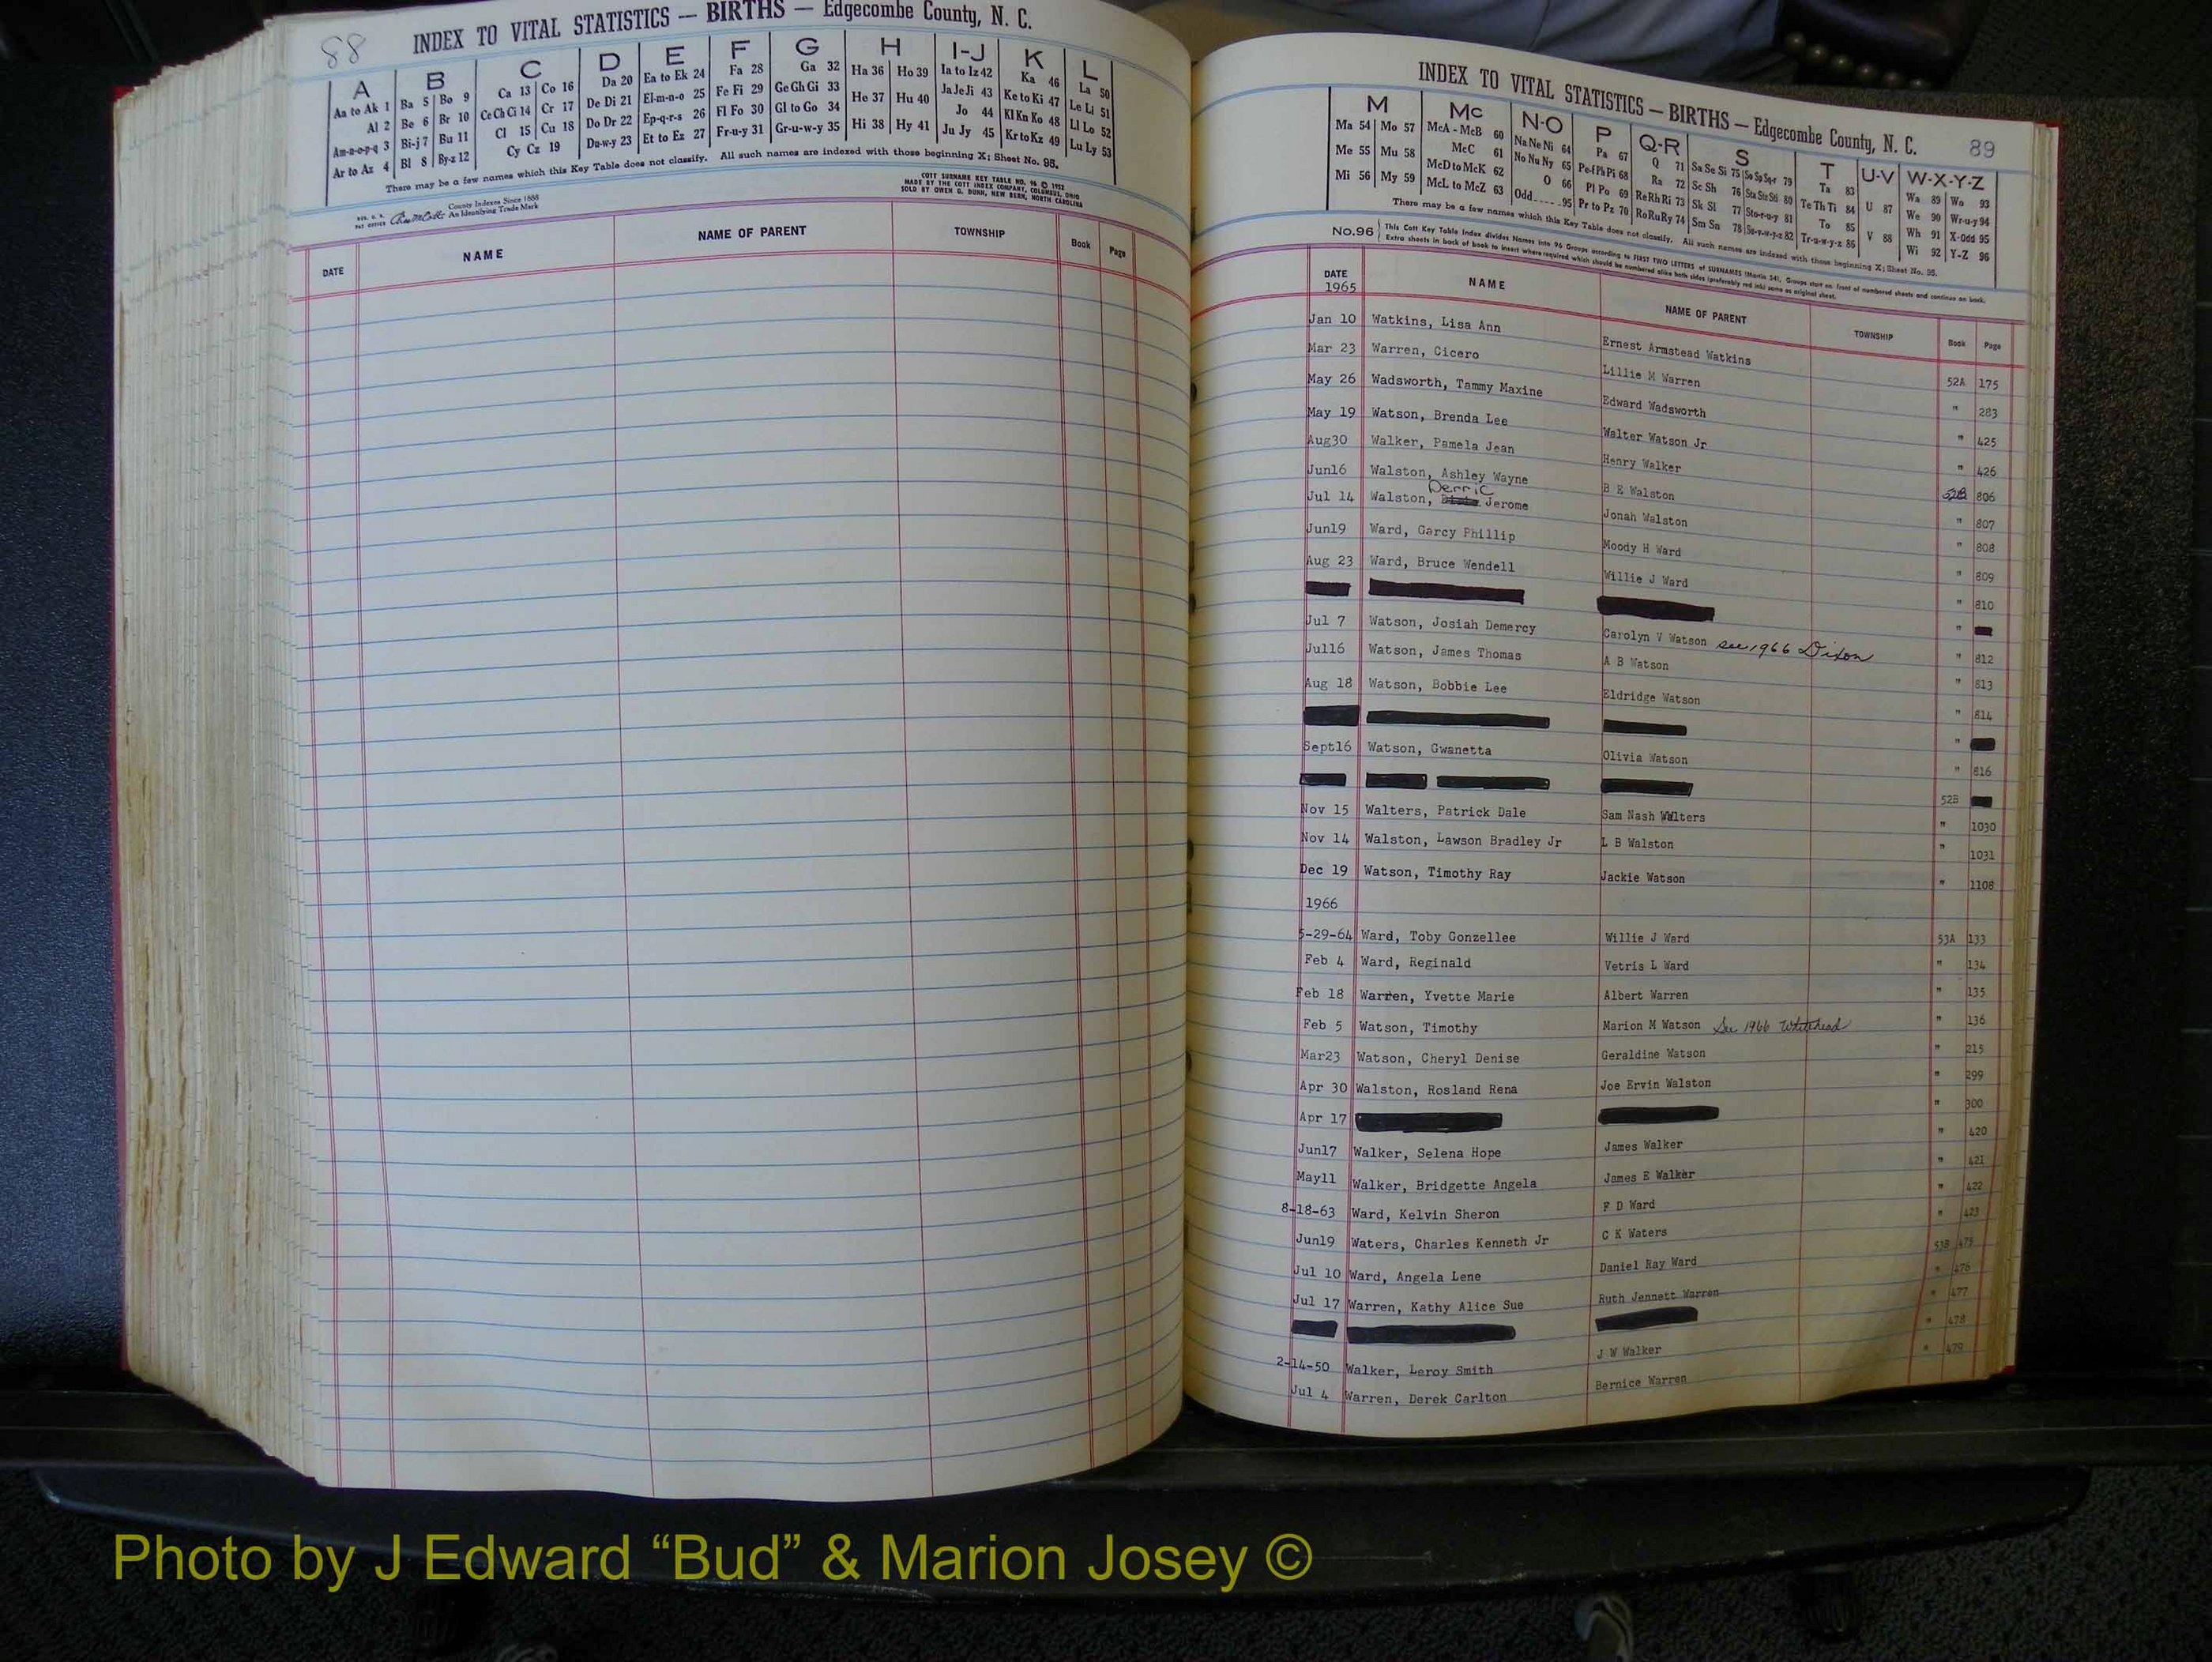 88
INDEX TO VITAL STATISTICS — BIRTHS — Edgecombe County, N. C.
A B C D E F G H I-J K L
Aa to Ak 1 Ba 5 Bo 9 Ca 13 Co 16 Da 20 Ea to Ek 24 Fa 28 Ga 32 Ha 36 Ho 39 Ia to Iz 42 Ka 46 La 50
Al 2 Be 6 Br 10 Ce Ch Ci 14 Cr 17 De Di 21 El-m-n-o 25 Fe Fi 29 Ge Gh Gi 33 He 37 Hu 40 Ja Je Ji 43 Ke to Ki 47 Le Li 51
Am-n-o-p-q 3 Bi-j 7 Bu 11 Cl 15 Cu 18 Do Dr 22 Ep-q-r-s 26 Fl Fo 30 Gl to Go 34 Hi 38 Hy 41 Jo 44 Kl Kn Ko 48 Ll Lo 52
Ar to Az 4 Bl 8 By-z 12 Cy Cz 19 Du-w-y 23 Et to Ez 27 Fr-u-y 31 Gr-u-w-y 35 Ju Jy 45 Kr to Kz 49 Lu Ly 53
There may be a few names which this Key Table does not classify. All such names are indexed with those beginning X; Sheet No. 95.
County Indexes Since 1888
An Identifying Trade Mark
COTT SURNAME KEY TABLE NO. 96 © 1952
MADE BY THE COTT INDEX COMPANY, COLUMBUS, OHIO
SOLD BY OWEN G. DUNN, NEW BERN, NORTH CAROLINA
DATE NAME NAME OF PARENT TOWNSHIP Book Page
INDEX TO VITAL STATISTICS — BIRTHS — Edgecombe County, N. C. 89
M Mc N-O P Q-R S T U-V W-X-Y-Z
Ma 54 Mo 57 McA - McB 60 Na Ne Ni 64 Pa 67 Q 71 Sa Se Si 75 So Sp Sq-r 79 Ta 83 U 87 Wa 89 Wo 93
Me 55 Mu 58 McC 61 No Nu Ny 65 Pe-f Ph Pi 68 Ra 72 Sc Sh 76 Sta Ste Sti 80 Te Th Ti 84 V 88 We 90 Wr-u-y 94
Mi 56 My 59 McD to McK 62 O 66 Pl Po 69 Re Rh Ri 73 Sk Sl 77 Sto-r-u-y 81 To 85 Wh 91 X-Odd 95
McL to McZ 63 Odd 95 Pr to Pz 70 Ro Ru Ry 74 Sm Sn 78 Su-v-w-y-z 82 Tr-u-w-y-z 86 Wi 92 Y-Z 96
There may be a few names which this Key Table does not classify. All such names are indexed with those beginning X; Sheet No. 95.
No. 96 This Cott Key Table Index divides Names into 96 Groups according to FIRST TWO LETTERS of SURNAMES (Martin 54). Groups start on front of numbered sheets and continue on back.
Extra sheets in back of book to insert where required which should be numbered alike both sides (preferably red ink) same as original sheet.
DATE NAME NAME OF PARENT TOWNSHIP Book Page
1965
Jan 10 Watkins, Lisa Ann Ernest Armstead Watkins 52A 175
Mar 23 Warren, Cicero Lillie M Warren " 283
May 26 Wadsworth, Tammy Maxine Edward Wadsworth " 425
May 19 Watson, Brenda Lee Walter Watson Jr " 426
Aug30 Walker, Pamela Jean Henry Walker 52B 806
Jun16 Walston, Ashley Wayne B E Walston " 807
Jul 14 Walston, Derric Jerome Jonah Walston " 808
Jun19 Ward, Garcy Phillip Moody H Ward " 809
Aug 23 Ward, Bruce Wendell Willie J Ward " 810
"
Jul 7 Watson, Josiah Demercy Carolyn V Watson see 1966 Dixon " 812
Jul16 Watson, James Thomas A B Watson " 813
Aug 18 Watson, Bobbie Lee Eldridge Watson " 814
"
Sept16 Watson, Gwanetta Olivia Watson " 816
52B
Nov 15 Walters, Patrick Dale Sam Nash Walters " 1030
Nov 14 Walston, Lawson Bradley Jr L B Walston " 1031
Dec 19 Watson, Timothy Ray Jackie Watson " 1108
1966
5-29-64 Ward, Toby Gonzellee Willie J Ward 53A 133
Feb 4 Ward, Reginald Vetris L Ward " 134
Feb 18 Warren, Yvette Marie Albert Warren " 135
Feb 5 Watson, Timothy Marion M Watson See 1966 Whitehead " 136
Mar23 Watson, Cheryl Denise Geraldine Watson " 215
Apr 30 Walston, Rosland Rena Joe Ervin Walston " 299
Apr 17 " 300
Jun17 Walker, Selena Hope James Walker " 420
May11 Walker, Bridgette Angela James E Walker " 421
8-18-63 Ward, Kelvin Sheron F D Ward " 422
Jun19 Waters, Charles Kenneth Jr C K Waters " 423
Jul 10 Ward, Angela Lene Daniel Ray Ward 53B 475
Jul 17 Warren, Kathy Alice Sue Ruth Jennett Warren " 476
" 477
2-14-50 Walker, Leroy Smith J W Walker " 478
Jul 4 Warren, Derek Carlton Bernice Warren " 479
Photo by J Edward “Bud” & Marion Josey ©